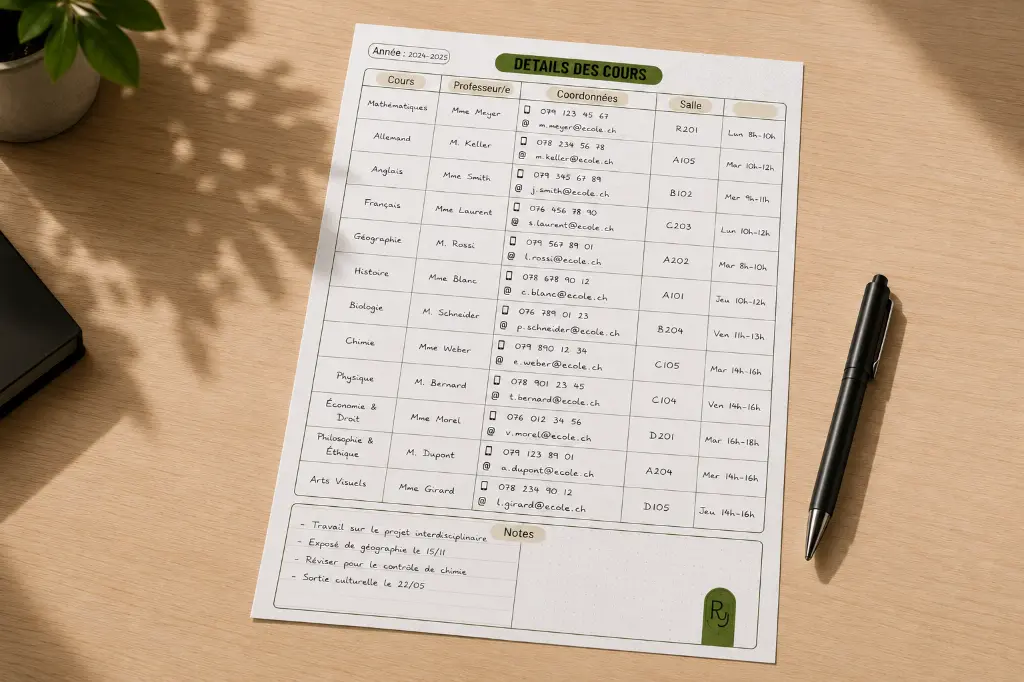 Année : 2024-2025
DETAILS DES COURS
Cours Professeur/e Coordonnées Salle
Mathématiques Mme Meyer 079 123 45 67 R201 Lun 8h-10h
@ m.meyer@ecole.ch
Allemand M. Keller 078 234 56 78 A105 Mar 10h-12h
@ m.keller@ecole.ch
Anglais Mme Smith 079 345 67 89 B102 Mer 9h-11h
@ j.smith@ecole.ch
Français Mme Laurent 076 456 78 90 C203 Lun 10h-12h
@ s.laurent@ecole.ch
Géographie M. Rossi 079 567 89 01 A202 Mar 8h-10h
@ l.rossi@ecole.ch
Histoire Mme Blanc 078 678 90 12 A101 Jeu 10h-12h
@ c.blanc@ecole.ch
Biologie M. Schneider 076 789 01 23 B204 Ven 11h-13h
@ p.schneider@ecole.ch
Chimie Mme Weber 079 890 12 34 C105 Mar 14h-16h
@ e.weber@ecole.ch
Physique M. Bernard 078 901 23 45 C104 Ven 14h-16h
@ t.bernard@ecole.ch
Économie & Mme Morel 076 012 34 56 D201 Mar 16h-18h
Droit @ v.morel@ecole.ch
Philosophie & M. Dupont 079 123 89 01 A204 Mer 14h-16h
Éthique @ a.dupont@ecole.ch
Arts Visuels Mme Girard 078 234 90 12 D105 Jeu 14h-16h
@ l.girard@ecole.ch
Notes
- Travail sur le projet interdisciplinaire
- Exposé de géographie le 15/11
- Réviser pour le contrôle de chimie
- Sortie culturelle le 22/05
RJ